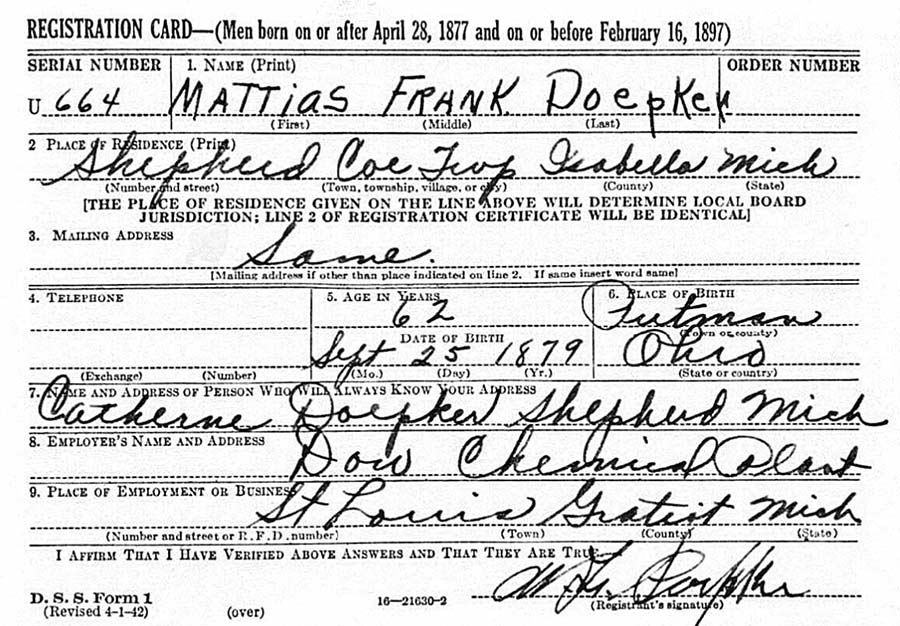 REGISTRATION CARD—(Men born on or after April 28, 1877 and on or before February 16, 1897)
SERIAL NUMBER 1. NAME (Print) ORDER NUMBER
U 664 MATTIAS FRANK DOEPKER
(First) (Middle) (Last)
2 PLACE OF RESIDENCE (Print)
Shepherd Coe Twp Isabella Mich
(Number and street) (Town, township, village, or city) (County) (State)
[THE PLACE OF RESIDENCE GIVEN ON THE LINE ABOVE WILL DETERMINE LOCAL BOARD
JURISDICTION; LINE 2 OF REGISTRATION CERTIFICATE WILL BE IDENTICAL]
3. MAILING ADDRESS
Same.
[Mailing address if other than place indicated on line 2. If same insert word same]
4. TELEPHONE 5. AGE IN YEARS 6. PLACE OF BIRTH
62 Putman
DATE OF BIRTH (Town or county)
Sept 25 1879 Ohio
(Exchange) (Number) (Mo.) (Day) (Yr.) (State or country)
7. NAME AND ADDRESS OF PERSON WHO WILL ALWAYS KNOW YOUR ADDRESS
Catherne Doepker Shepherd Mich
8. EMPLOYER'S NAME AND ADDRESS
Dow Chemical Plant
9. PLACE OF EMPLOYMENT OR BUSINESS
St Louis Gratiot Mich
(Number and street or R. F. D. number) (Town) (County) (State)
I AFFIRM THAT I HAVE VERIFIED ABOVE ANSWERS AND THAT THEY ARE TRUE.
D. S. S. Form 1
(Revised 4-1-42) (over) 16—21630-2 (Registrant's signature)